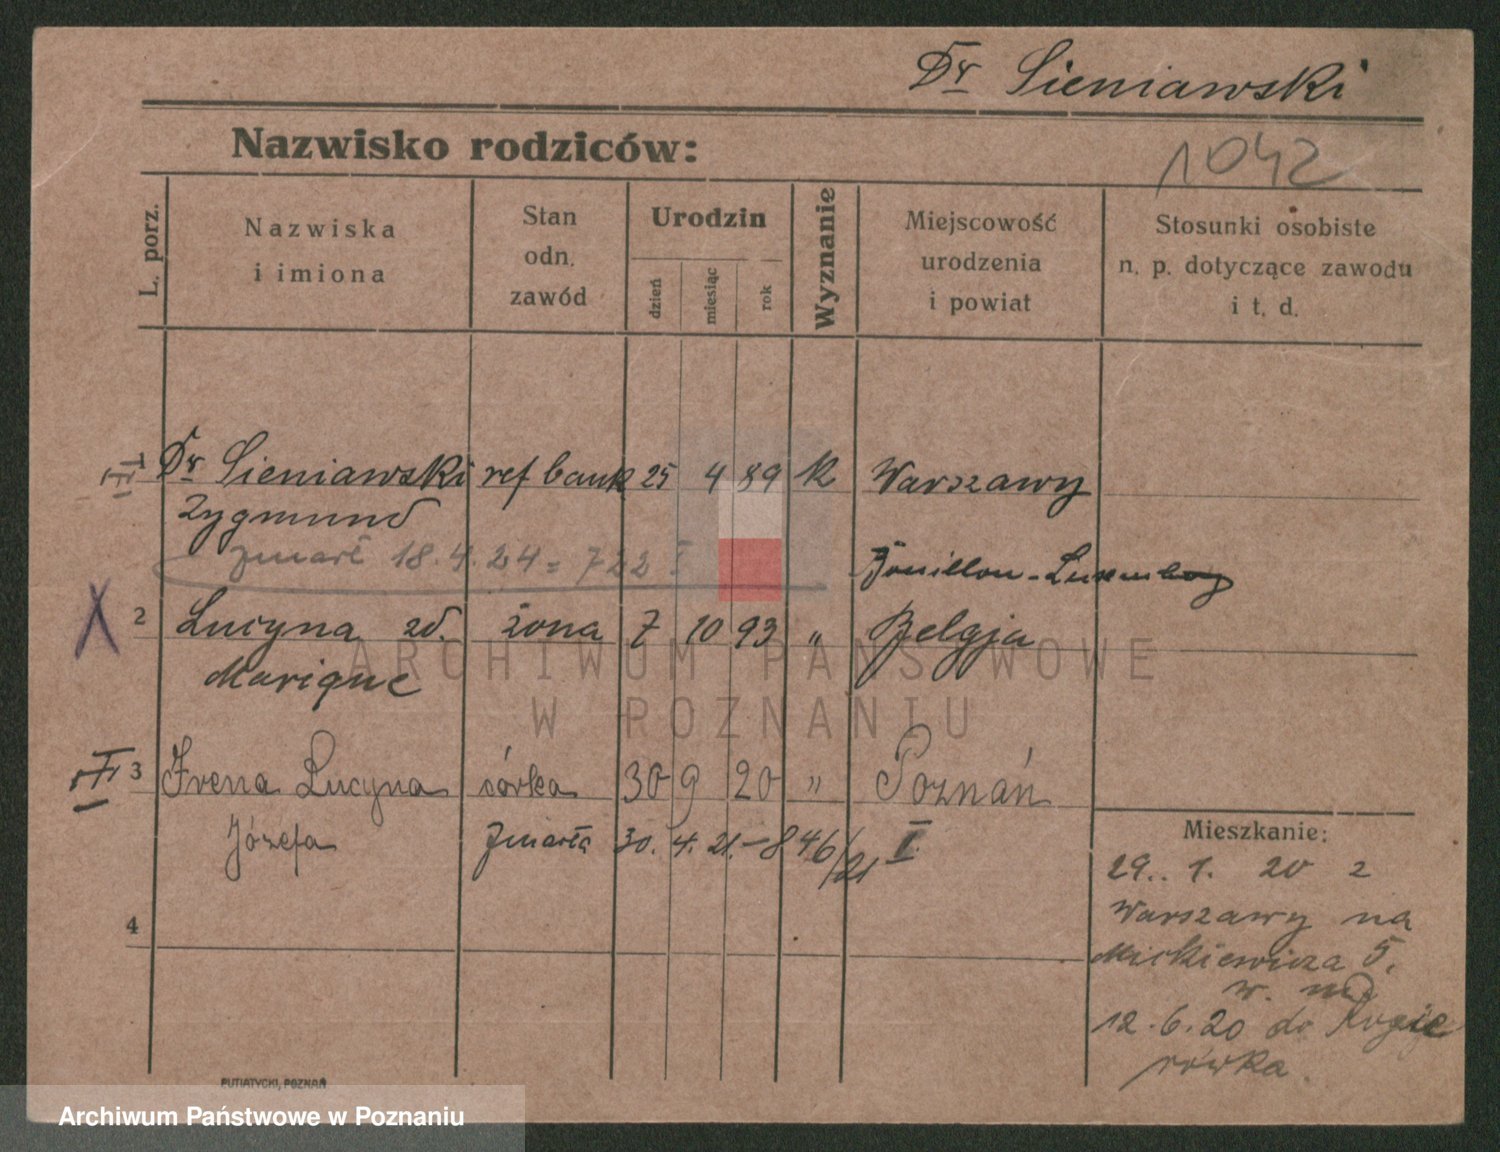 Dr Sieniawski
Nazwisko rodziców:
1042
L. porz.
Nazwiska
i imiona
Stan
odn.
zawód
Urodzin
dzień
miesiąc
rok
Wyznanie
Miejscowość
urodzenia
i powiat
Stosunki osobiste
n. p. dotyczące zawodu
i t. d.
Dr Sieniawski ref bank 25 4 89 k Warszawy
Zygmund
zmarł 18.4.24 = 722 I
Luxemburg
2 Lucyna zd. żona 7 10 93 " Belgja
Marique
3 Irena Lucyna córka 30 9 20 " Poznań
Józefa zmarła 30. 4. 21. – 846/21 I
4
Mieszkanie:
29.. 1. 20 z
Warszawy na
Mickiewicza 5.
w. m.
12.6.20 do
PUTIATYCKI, POZNAŃ
ARCHIWUM PAŃSTWOWE
W POZNANIU
Archiwum Państwowe w Poznaniu